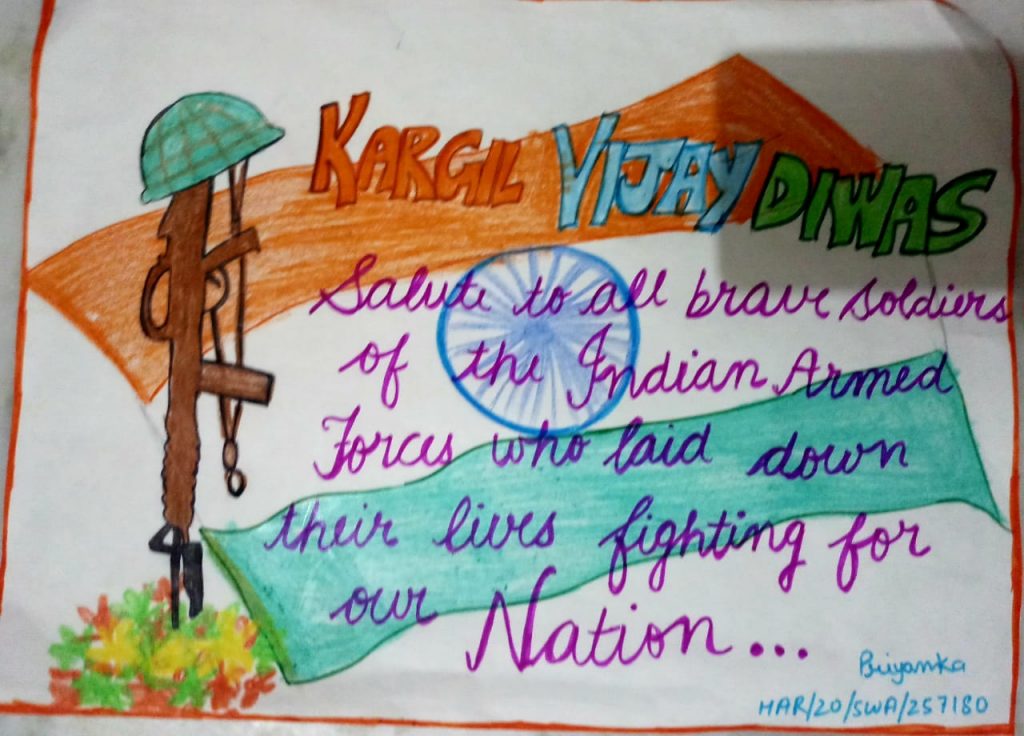 KARGIL VIJAY DIWAS
Salute to all brave soldiers
of the Indian Armed
Forces who laid down
their lives fighting for
our Nation...
Priyanka
HAR/20/SWA/257180